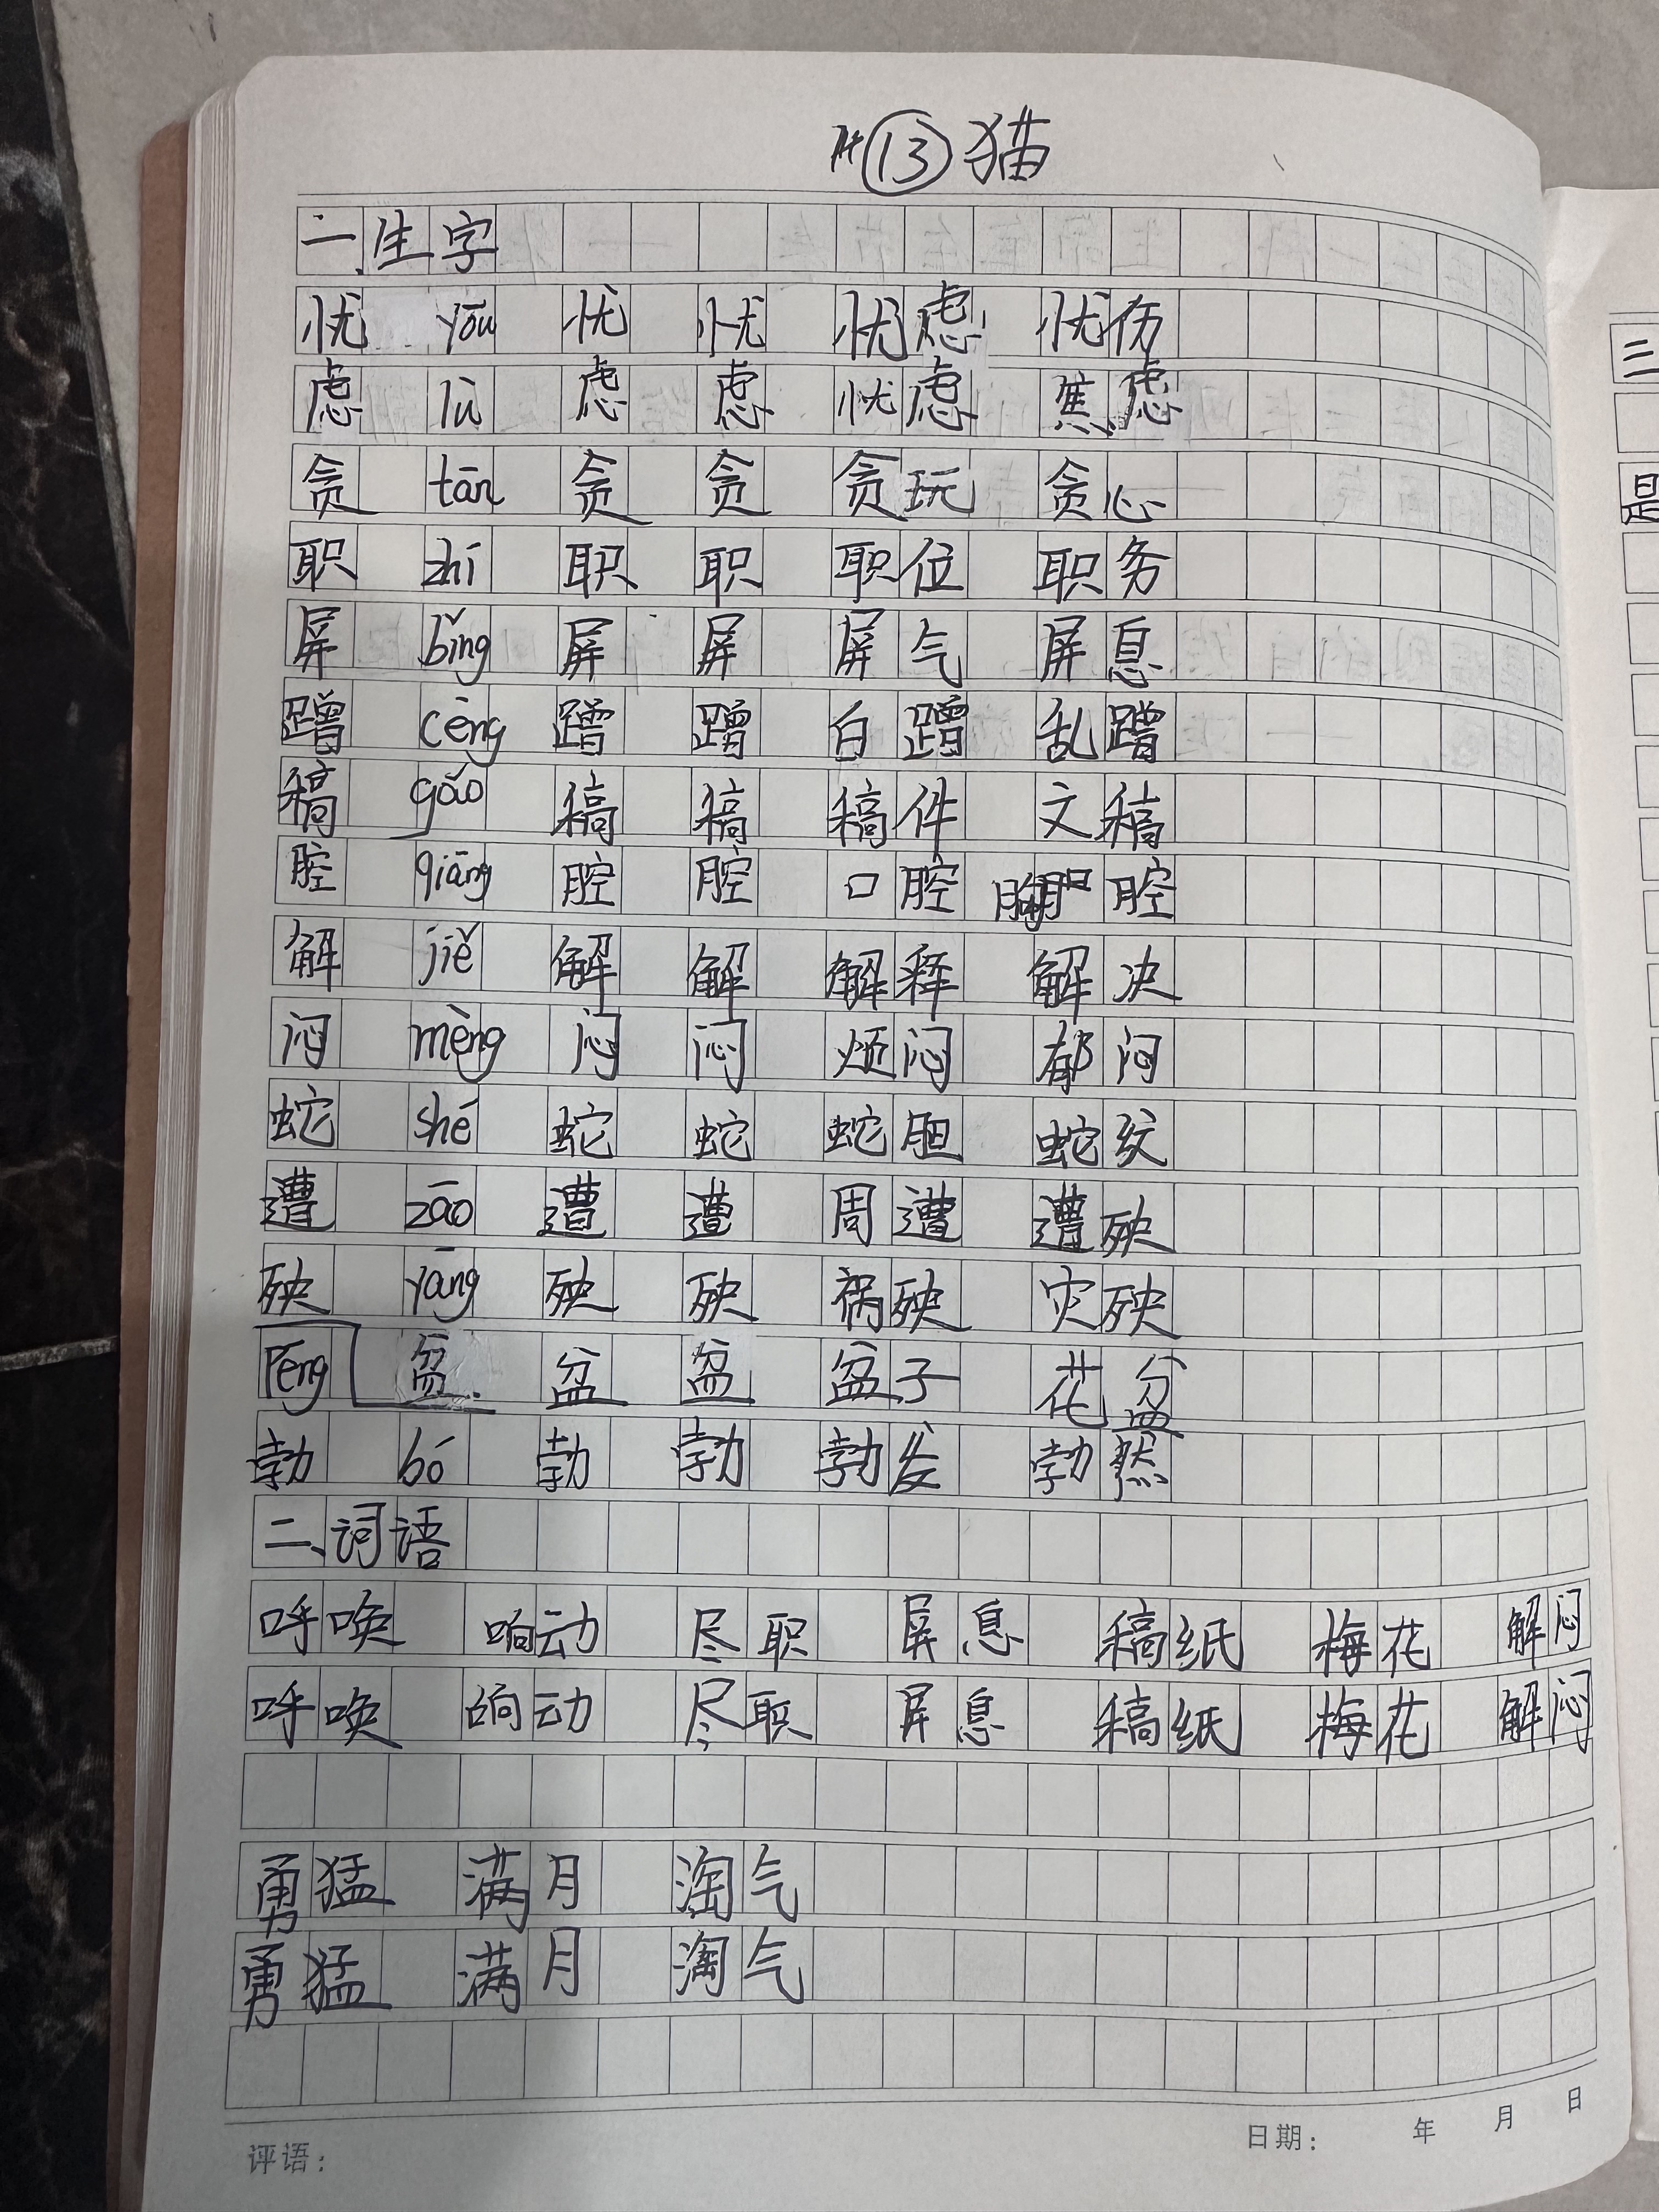 ⑬猫
一、生字
忧 yōu 忧 忧 忧虑 忧伤
虑 lǜ 虑 虑 忧虑 焦虑
贪 tān 贪 贪 贪玩 贪心
职 zhí 职 职 职位 职务
屏 bǐng 屏 屏 屏气 屏息
蹭 cèng 蹭 蹭 白蹭 乱蹭
稿 gǎo 稿 稿 稿件 文稿
腔 qiāng 腔 腔 口腔 腔
解 jiě 解 解 解释 解决
闷 mèng 闷 闷 烦闷 郁闷
蛇 shé 蛇 蛇 蛇胆 蛇纹
遭 zāo 遭 遭 周遭 遭殃
殃 yāng 殃 殃 祸殃 灾殃
Péng 盆 盆 盆 盆子 花盆
勃 bó 勃 勃 勃发 勃然
二、词语
呼唤 响动 尽职 屏息 稿纸 梅花 解闷
呼唤 响动 尽职 屏息 稿纸 梅花 解闷
勇猛 满月 淘气
勇猛 满月 淘气
评语： 日期： 年 月 日
三
是